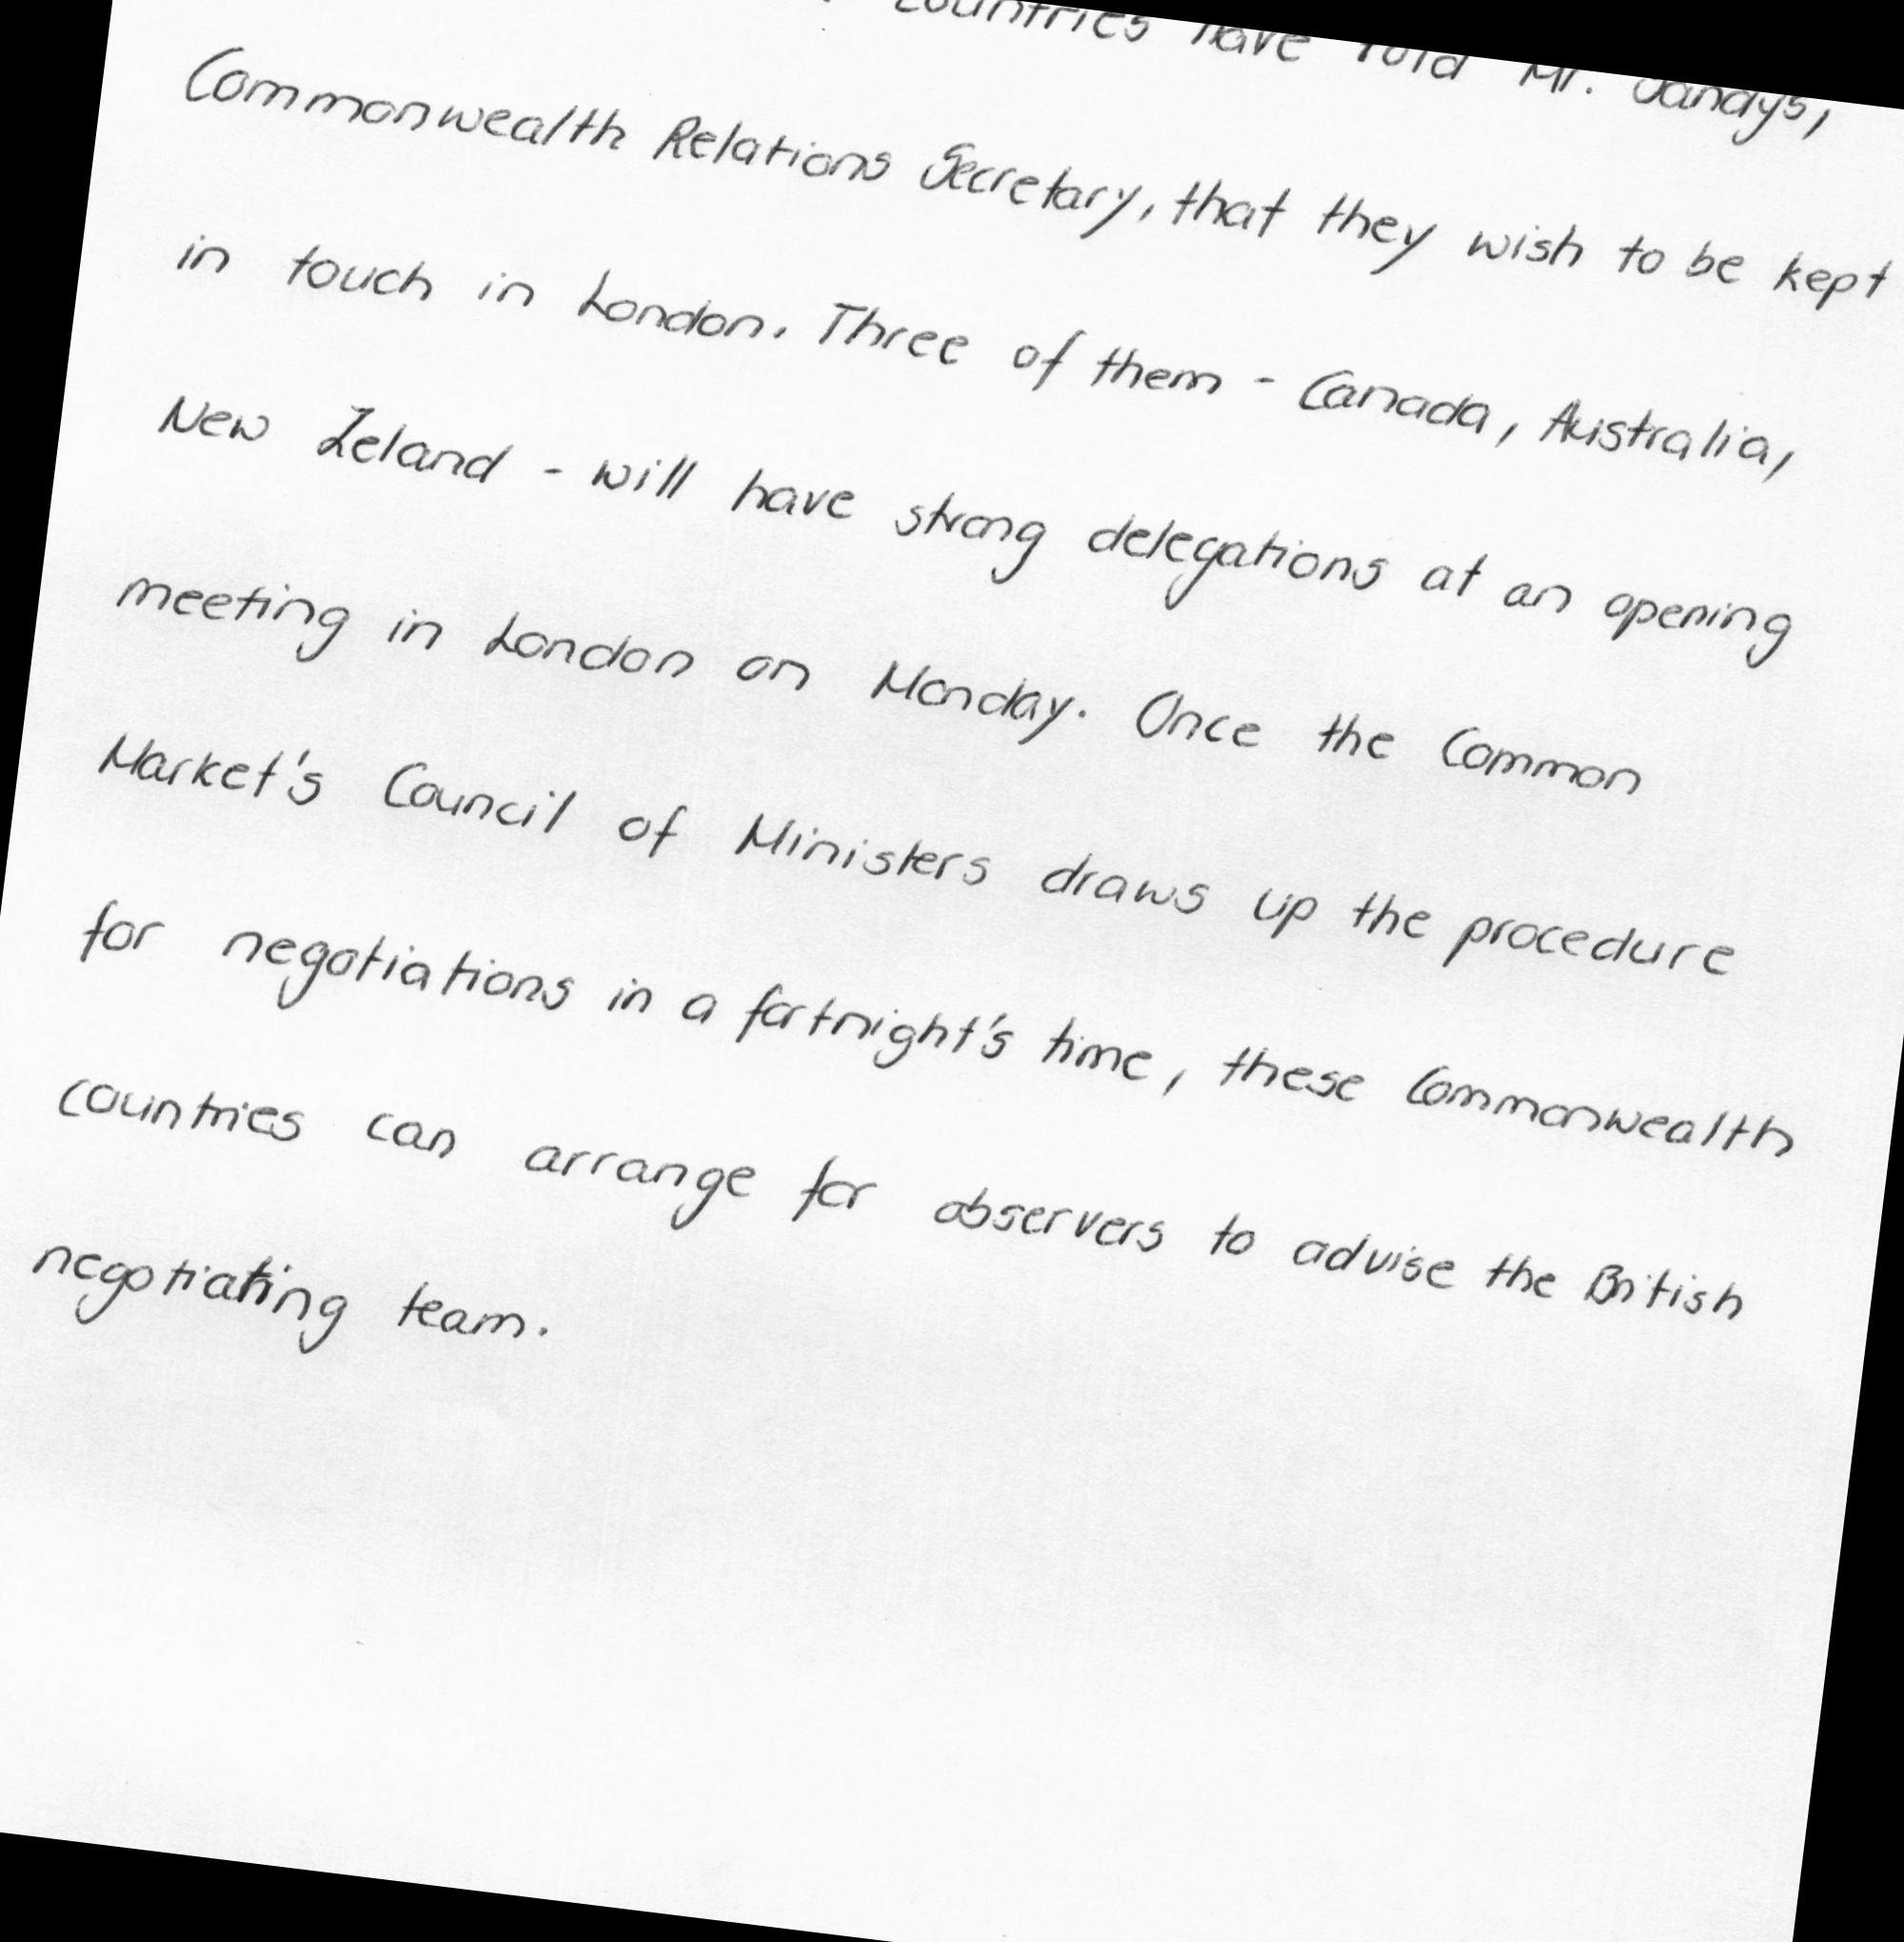 countries have told Mr. Sandys,
Commonwealth Relations Secretary, that they wish to be kept
in touch in London. Three of them - Canada, Australia,
New Zeland - will have strong delegations at an opening
meeting in London on Monday. Once the Common
Market's Council of Ministers draws up the procedure
for negotiations in a fortnight's time, these Commonwealth
countries can arrange for observers to advise the British
negotiating team.